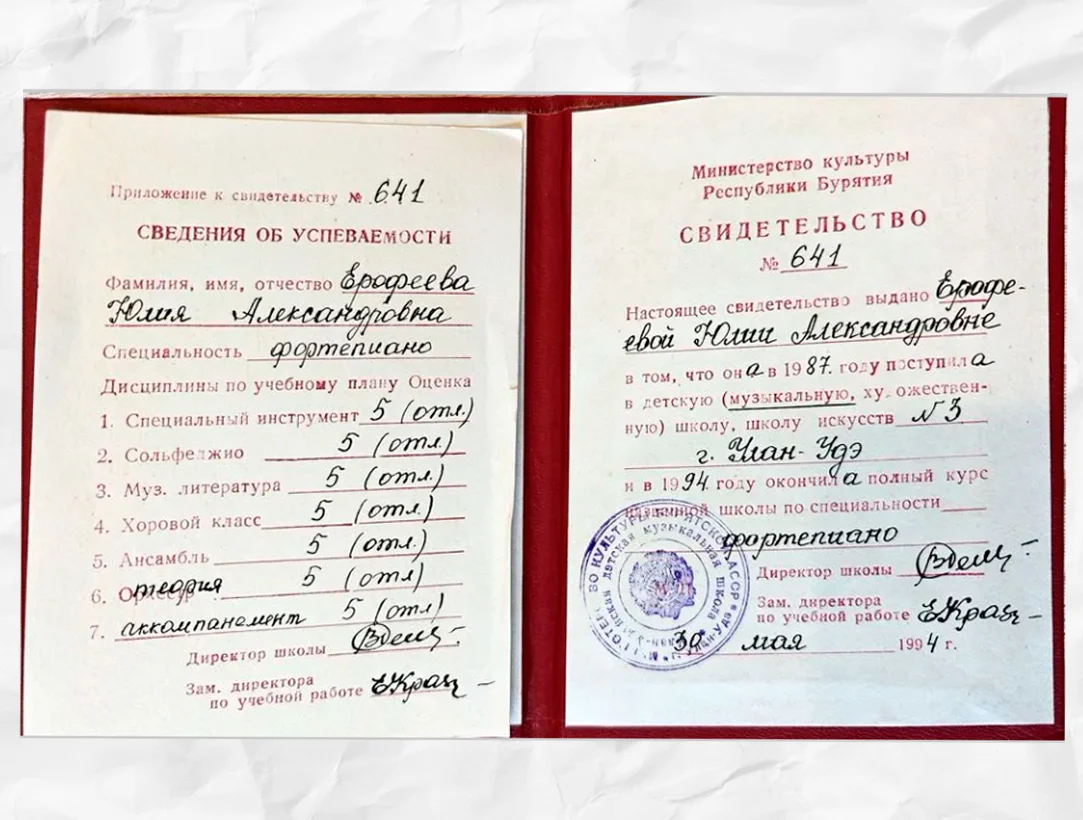 Приложение к свидетельству № 641
СВЕДЕНИЯ ОБ УСПЕВАЕМОСТИ
Фамилия, имя, отчество Ерофеева
Юлия Александровна
Специальность фортепиано
Дисциплины по учебному плану Оценка
1. Специальный инструмент 5 (отл.)
2. Сольфеджио 5 (отл.)
3. Муз. литература 5 (отл.)
4. Хоровой класс 5 (отл.)
5. Ансамбль 5 (отл.)
6. теория 5 (отл)
7. аккомпанемент 5 (отл)
Директор школы
Зам. директора
по учебной работе
Министерство культуры
Республики Бурятия
СВИДЕТЕЛЬСТВО
№ 641
Настоящее свидетельство выдано Ерофе-
евой Юлии Александровне
в том, что она в 1987. году поступила
в детскую (музыкальную, художествен-
ную) школу, школу искусств №3
г. Улан-Удэ
и в 1994 году окончила полный курс
названной школы по специальности
фортепиано
Директор школы
Зам. директора
по учебной работе
30 мая 1994 г.